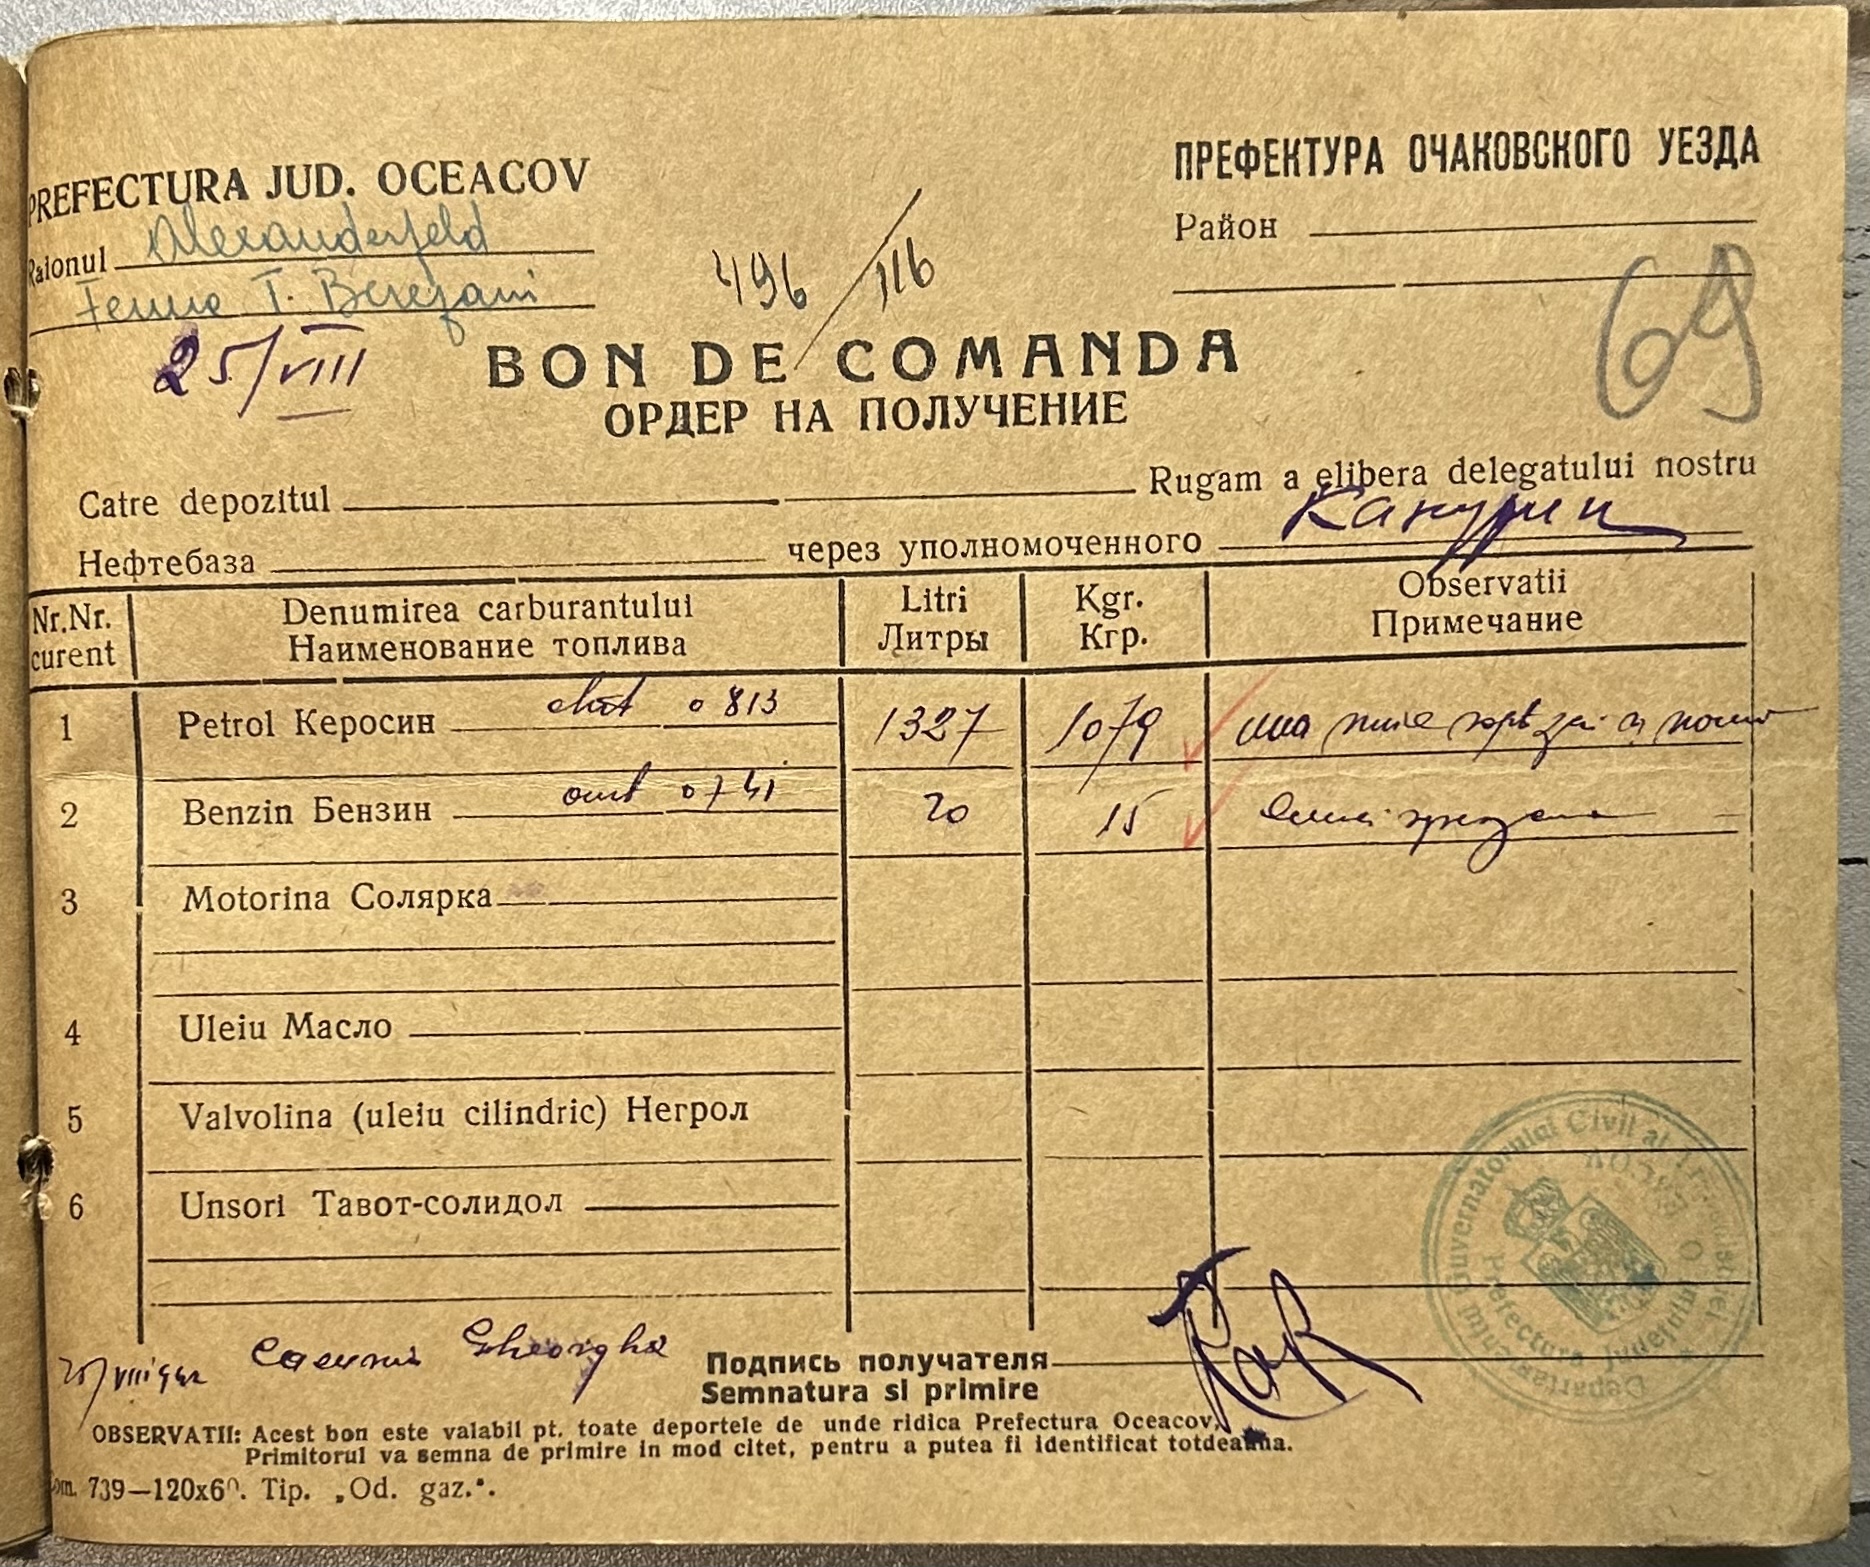 PREFECTURA JUD. OCEACOV
ПРЕФЕКТУРА ОЧАКОВСКОГО УЕЗДА
Raionul Alexanderfeld
Район
T. Berezani
496/116
69
25/VIII
BON DE COMANDA
ОРДЕР НА ПОЛУЧЕНИЕ
Catre depozitul Rugam a elibera delegatului nostru
Нефтебаза через уполномоченного
Nr.Nr. curent Denumirea carburantului Наименование топлива Litri Литры Kgr. Кгр. Observatii Примечание
1 Petrol Керосин 0 813 1327 1079
2 Benzin Бензин 0741 20 15
3 Motorina Солярка
4 Uleiu Масло
5 Valvolina (uleiu cilindric) Негрол
6 Unsori Тавот-солидол
Guvernatorului Civil al Transnistriei
Prefectura Judeţului
25/VIII 942 Gheorghe
Подпись получателя
Semnatura si primire
OBSERVATII: Acest bon este valabil pt. toate deportele de unde ridica Prefectura Oceacov.
Primitorul va semna de primire in mod citet, pentru a putea fi identificat totdeauna.
Com. 739—120x60. Tip. „Od. gaz.“.